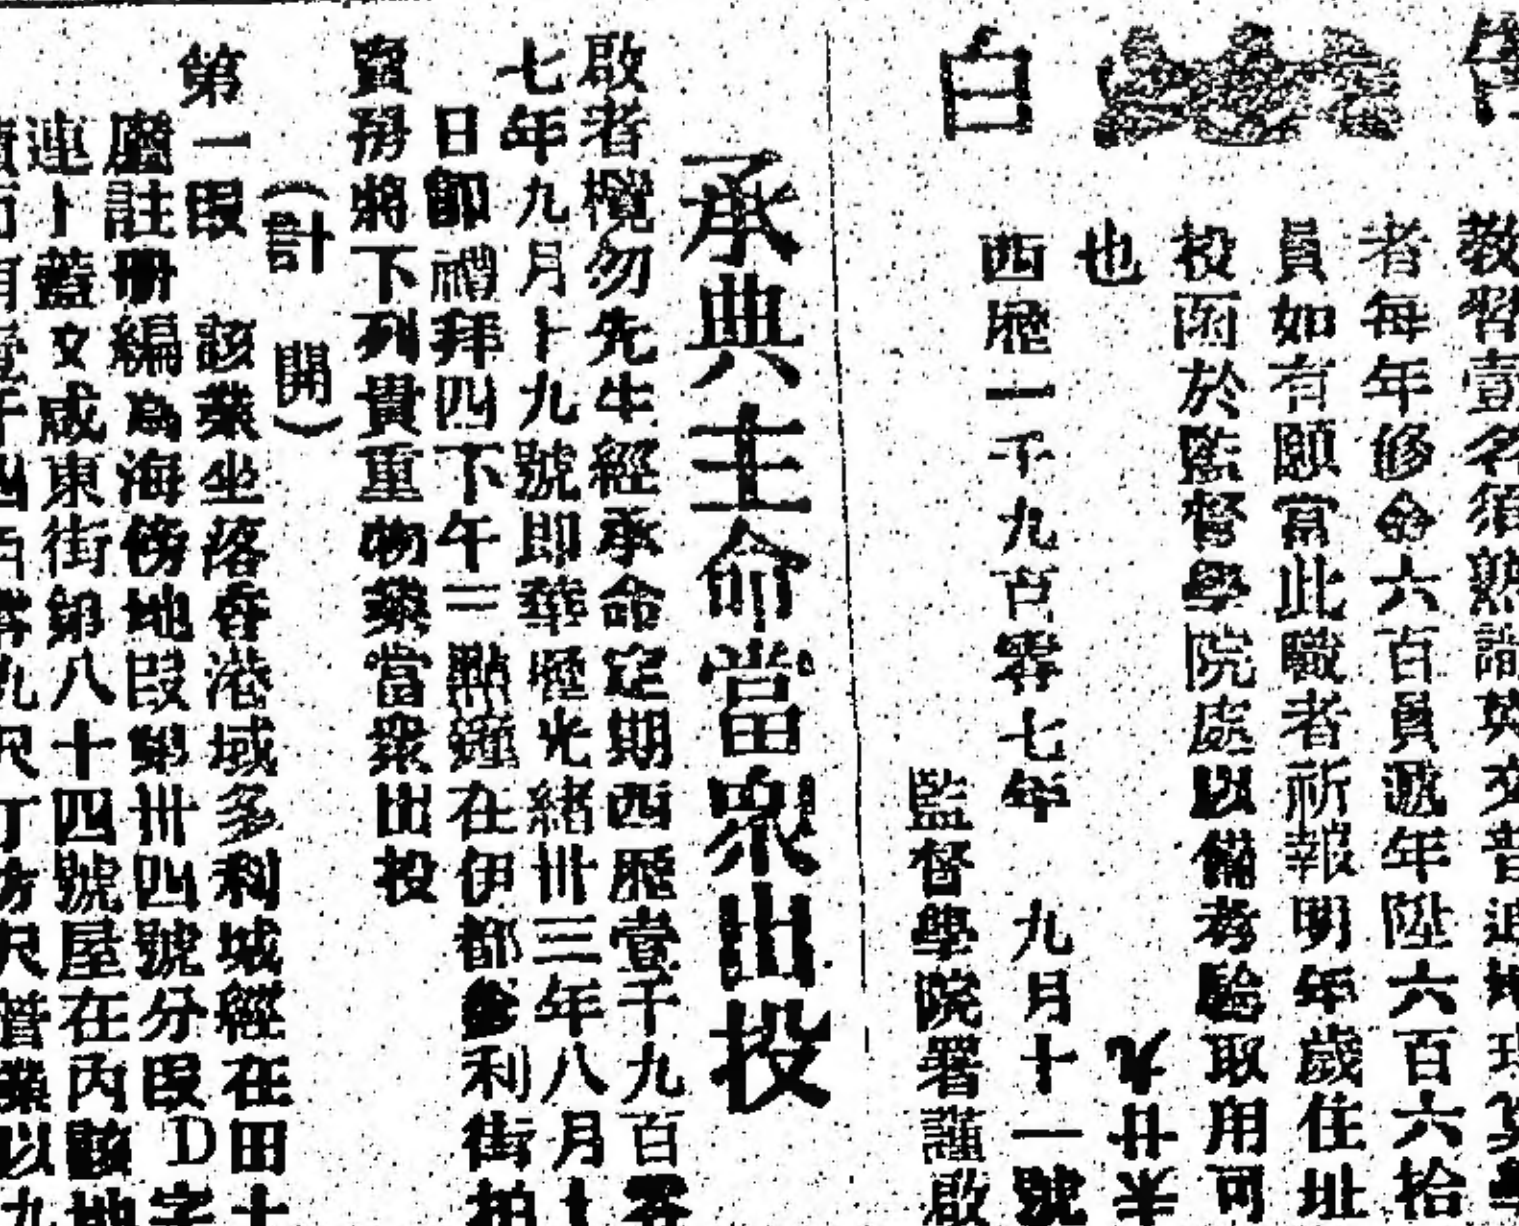 白
教習壹名須熟諳英文普通地理算學
者每年修金六百員遞年陞六百六拾
員如有願當此職者祈報明年歲住址
投函於監督學院處以備考驗取用可
也
九廿米
西歷一千九百零七年 九月十一號
監督學院署謹啟
承典主命當衆出投
啟者欖勿先生經承命定期西歷壹千九百零
七年九月十九號即華歷光緒卅三年八月十
日卽禮拜四下午三點鐘在伊都金利街拍
賣房將下列貴重物業當衆出投
(計 開)
第一段 該業坐落香港域多利城經在田土
廳註册編為海傍地段第卅四號分段D字
連上蓋文咸東街第八十四號屋在內該地